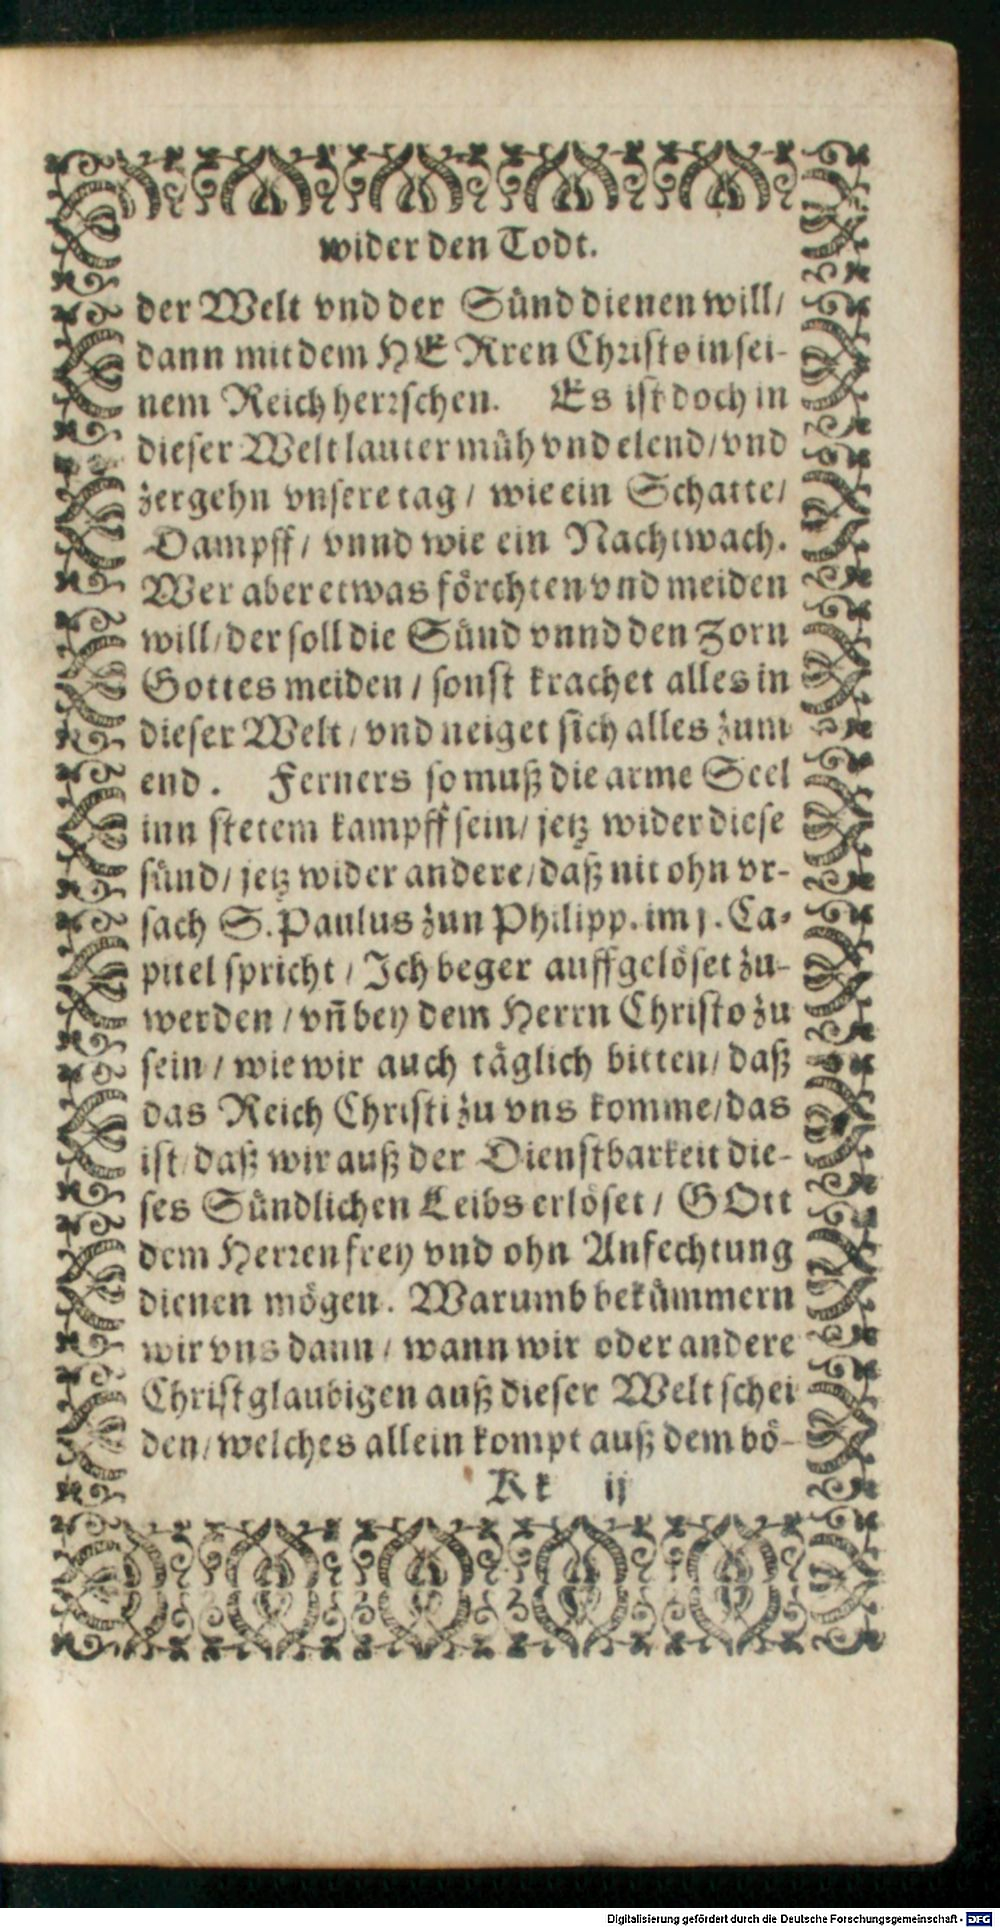 wider den Todt.
der Welt vnd der Sünd dienen will/
dann mit dem HERren Christo in sei-
nem Reich herrschen. Es ist doch in
dieser Welt lauter müh vnd elend/ vnd
zergehn vnsere tag/ wie ein Schatte/
Dampff/ vnnd wie ein Nachtwach.
Wer aber etwas förchten vnd meiden
will/ der soll die Sünd vnnd den Zorn
Gottes meiden/ sonst krachet alles in
dieser Welt/ vnd neiget sich alles zum
end. Ferners so muß die arme Seel
inn stetem kampff sein/ jetz wider diese
sünd/ jetz wider andere/ daß nit ohn vr-
sach S. Paulus zun Philipp. im j. Ca-
pitel spricht/ Ich beger auffgelöset zu-
werden/ vñ bey dem Herrn Christo zu
sein/ wie wir auch täglich bitten/ daß
das Reich Christi zu vns komme/ das
ist/ daß wir auß der Dienstbarkeit die-
ses Sündlichen Leibs erlöset/ GOtt
dem Herren frey vnd ohn Anfechtung
dienen mögen. Warumb bekümmern
wir vns dann/ wann wir oder andere
Christglaubigen auß dieser Welt schei
den/ welches allein kompt auß dem bö-
Kk ij
Digitalisierung gefördert durch die Deutsche Forschungsgemeinschaft - DFG